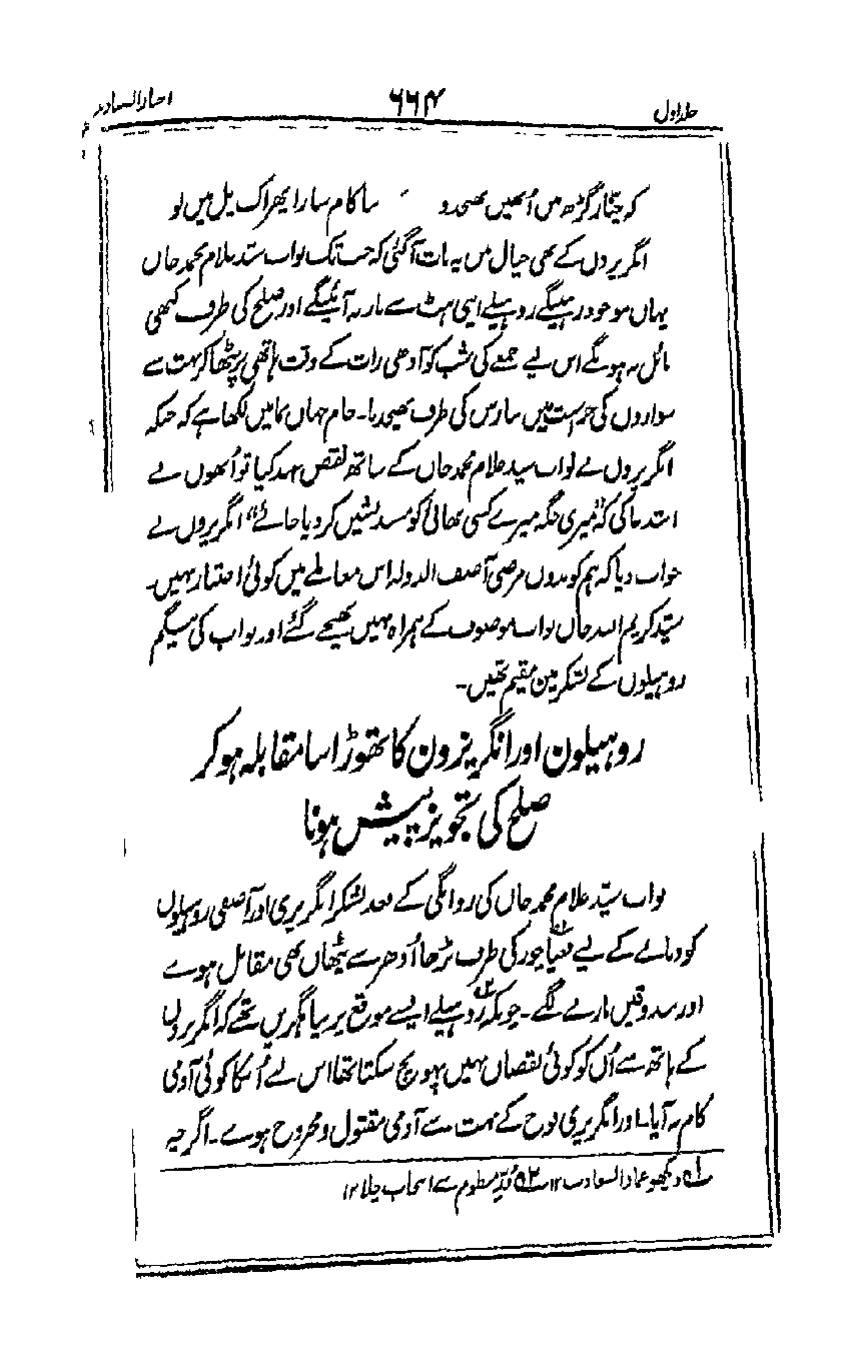 جلد اول ۶۶۴ اخبار الصنادید
کہ چنار گڑھ میں اُنھیں بھیجدو بنا کام سارا پھر اک پل میں لو
انگریزوں کے بھی خیال میں یہ بات آگئی کہ جب تک نواب سید غلام محمد خاں
یہاں موجود رہینگے روہیلے اپنی ہٹ سے باز نہ آئینگے اور صلح کی طرف کبھی
مائل نہ ہونگے اس لیے جمعے کی شب کو آدھی رات کے وقت ہاتھی پر بٹھا کر بہت سے
سواروں کی حراست میں بنارس کی طرف بھیجدیا۔ جام جہاں نما میں لکھا ہے کہ جبکہ
انگریزوں نے نواب سید غلام محمد خاں کے ساتھ نقض عہد کیا تو اُنھوں نے
استدعا کی کہ "میری جگہ میرے کسی بھائی کو مسند نشیں کر دیا جائے" انگریزوں نے
جواب دیا کہ ہم کو بدوں مرضی آصف الدولہ اس معاملے میں کوئی اختیار نہیں۔
سیّد کریم اللہ خاں نواب موصوف کے ہمراہ نہیں بھیجے گئے اور نواب کی بیگم
روہیلوں کے لشکر مین مقیم تھیں۔
روہیلون اور انگریزون کا تھوڑا سا مقابلہ ہو کر
صلح کی تجویز پیش ہونا
نواب سیّد غلام محمد خاں کی روانگی کے بعد لشکر انگریزی اور آصفی روہیلوں
کو دبانے کے لیے نھیا چور کی طرف بڑھا اُدھر سے پٹھان بھی مقابل ہوے
اور بندوقیں مارنے لگے۔ چونکہ روہیلے ایسے موقع پر پناہ گزیں تھے کہ انگریزوں
کے ہاتھ سے اُن کو کوئی نقصان نہیں پہونچ سکتا تھا اس لیے اُنکا کوئی آدمی
کام نہ آیا۔ اور انگریزی فوج کے بہت سے آدمی مقتول و مجروح ہوے۔ اگرچہ
۱ دیکھو عماد السعادت ۱۲ ۲ منظوم سے انتخاب ۱۲